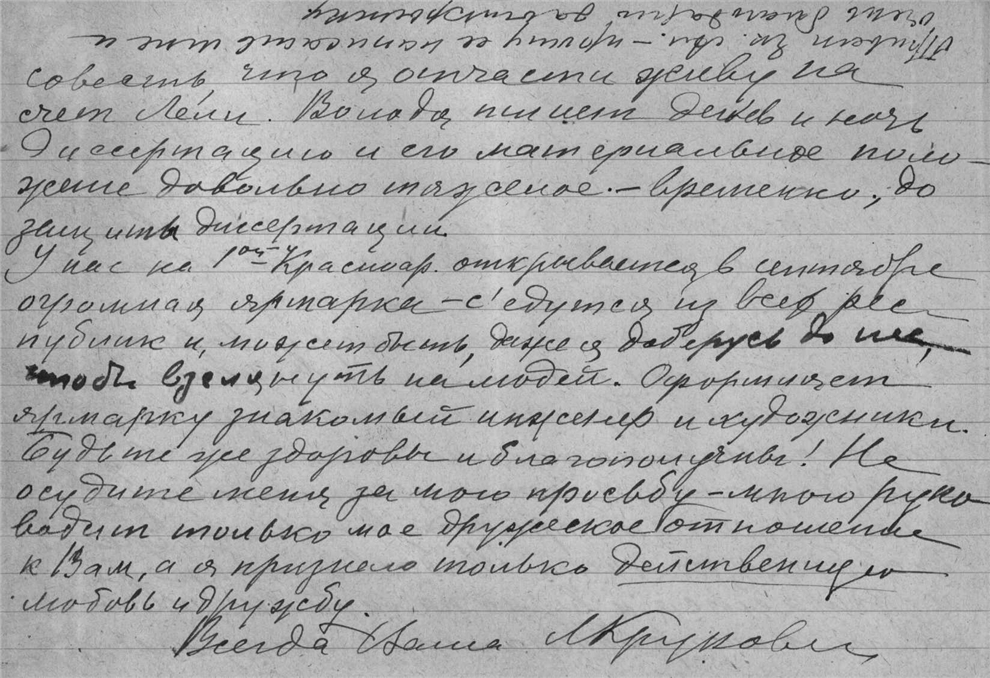 совесть, что я отчасти живу на
счет Лёли. Володя пишет день и ночь
диссертацию и его материальное поло-
жение довольно тяжелое – временно, до
защиты диссертации.
У нас на 1ой Красноар. открывается в сентябре
огромная ярмарка – с'едутся из всех рес-
публик и, может быть, даже я доберусь до нее,
чтобы взглянуть на людей. Оформляет
ярмарку знакомый инженер и художники.
Будьте же здоровы и благополучны! Не
осудите меня за мою просьбу – мною руко
водит только мое дружеское отношение
к Вам, а я признаю только действенную
любовь и дружбу.
Всегда Ваша
Привет